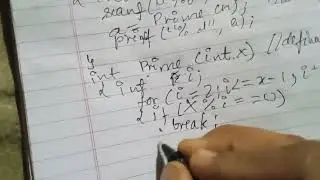 scanf("%d",
Prime (n);
printf ("%d", a);
}
int Prime (int x) //defin
{ int i;
for (i = 2; i <= x-1; i+
{ if (x % i == 0)
break;